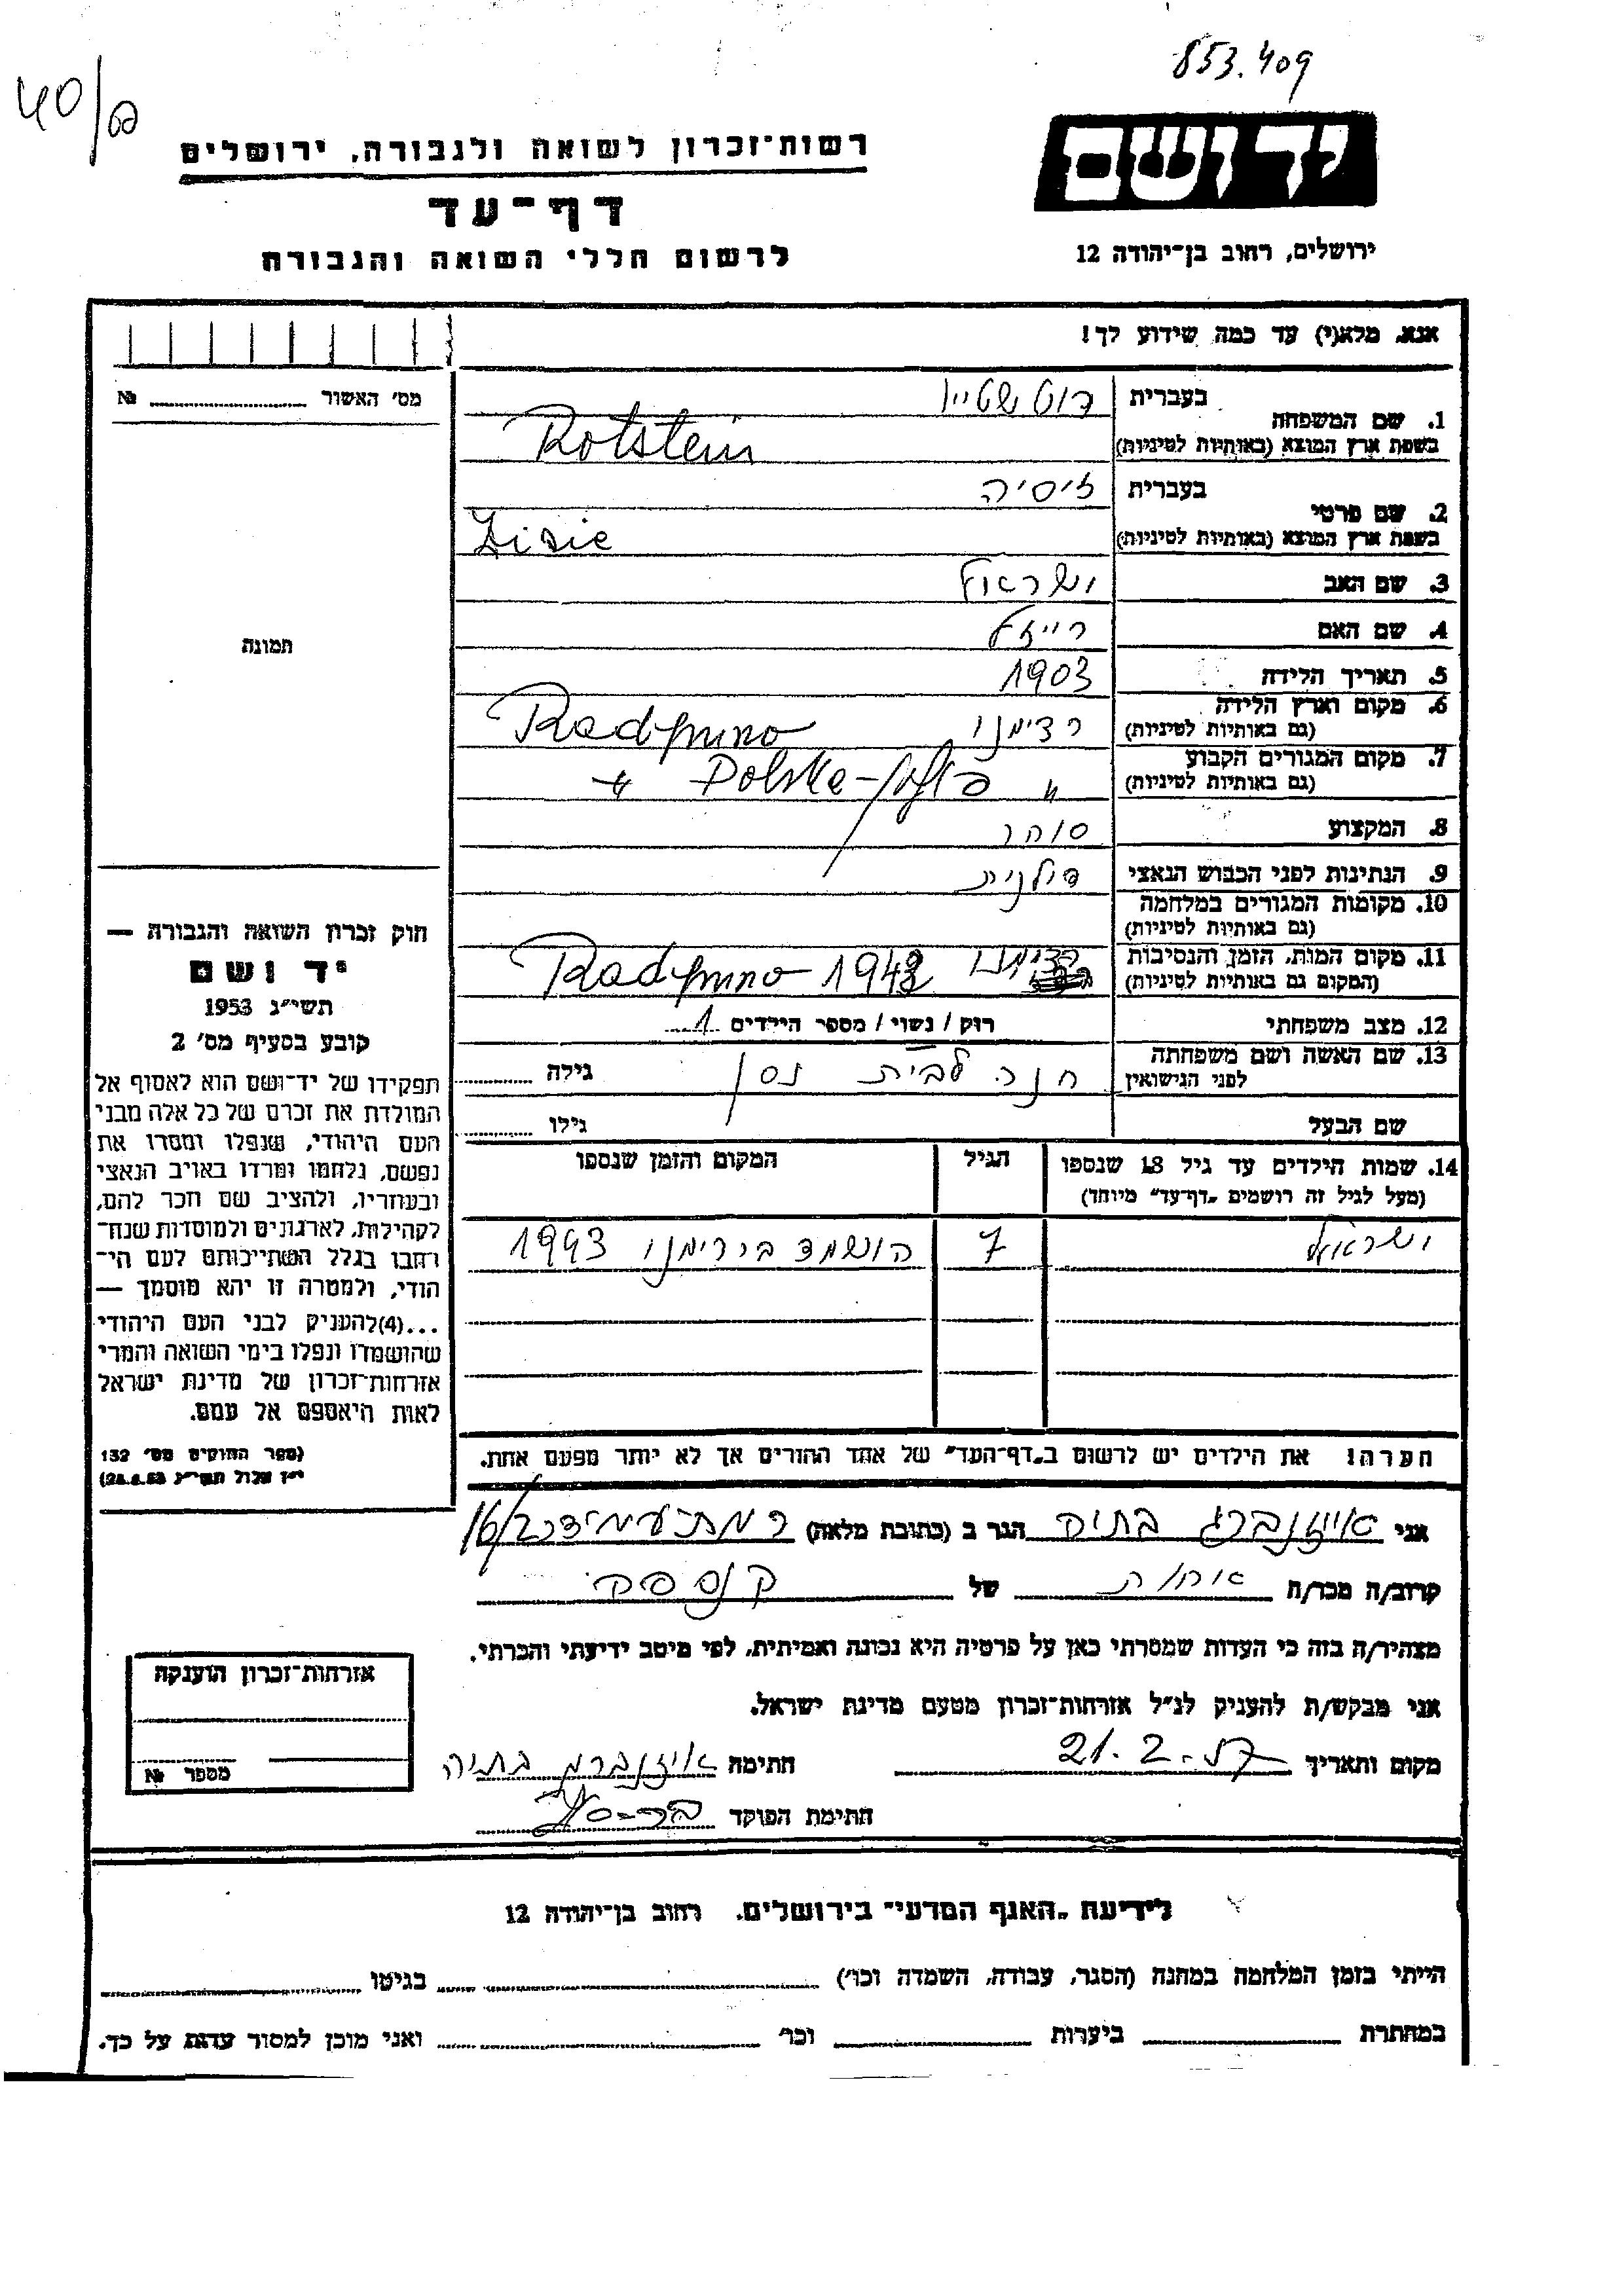 853.409
40/
יד ושם
רשות־זכרון לשואה ולגבורה, ירושלים
דף־עד
לרשום חללי השואה והגבורה
ירושלים, רחוב בן־יהודה 12
אנא, מלא(י) עד כמה שידוע לך!
מס' האשור № 
1. שם המשפחה
בעברית רוטשטיין
בשפת ארץ המוצא (באותיות לטיניות) Rotstein
2. שם פרטי
בעברית זיסיה
בשפת ארץ המוצא (באותיות לטיניות) Zisie
3. שם האב ישראל
4. שם האם רייזל
5. תאריך הלידה 1903
6. מקום וארץ הלידה רדימנו Radymno
(גם באותיות לטיניות)
7. מקום המגורים הקבוע " פולין - Polska "
(גם באותיות לטיניות)
8. המקצוע סוחר
9. הנתינות לפני הכבוש הנאצי פולנית
10. מקומות המגורים במלחמה
(גם באותיות לטיניות)
11. מקום המות, הזמן והנסיבות רדימנו Radymno 1942
(המקום גם באותיות לטיניות)
12. מצב משפחתי רוק / נשוי / מספר הילדים 1
13. שם האשה ושם משפחתה
לפני הנישואין חנה לבית נסן גילה
שם הבעל גילו
14. שמות הילדים עד גיל 18 שנספו הגיל המקום והזמן שנספו
(מעל לגיל זה רושמים „דף־עד" מיוחד)
ישראל 7 הושמד בירימנו 1943
הערה! את הילדים יש לרשום ב„דף־העד" של אחד ההורים אך לא יותר מפעם אחת.
תמונה
חוק זכרון השואה והגבורה —
יד ושם
תשי"ג 1953
קובע בסעיף מס' 2
תפקידו של יד־ושם הוא לאסוף אל
המולדת את זכרם של כל אלה מבני
העם היהודי, שנפלו ומסרו את
נפשם, נלחמו ומרדו באויב הנאצי
ובעוזריו, ולהציב שם וזכר להם,
לקהילות, לארגונים ולמוסדות שנח־
רבו בגלל השתייכותם לעם הי־
הודי, ולמטרה זו יהא מוסמך —
...(4)להעניק לבני העם היהודי
שהושמדו ונפלו בימי השואה והמרי
אזרחות־זכרון של מדינת ישראל
לאות היאספם אל עמם.
(ספר החוקים מס' 132
י"ז אלול תשי"ג 28.8.53)
אני אייזנברג בתיה הגר ב (כתובת מלאה) רמת עמידר 16/2
קרוב/ה מכר/ה אחות של
מצהיר/ה בזה כי העדות שמסרתי כאן על פרטיה היא נכונה ואמיתית, לפי מיטב ידיעתי והכרתי.
אני מבקש/ת להעניק לנ"ל אזרחות־זכרון מטעם מדינת ישראל.
מקום ותאריך 21.2.57 חתימה אייזנברג בתיה
חתימת הפוקד
אזרחות־זכרון הוענקה
מספר №
לידיעת „האגף המדעי" בירושלים. רחוב בן־יהודה 12
הייתי בזמן המלחמה במחנה (הסגר, עבודה, השמדה וכו') בגיטו
במחתרת ביערות וכו' ואני מוכן למסור עדות על כך.